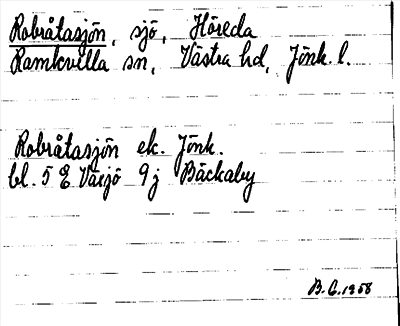 Robråtasjön, sjö, Höreda
Ramkvilla sn, Västra hd, Jönk. l.
Robråtasjön ek. Jönk.
bl. 5 E Växjö 9j Bäckaby
B.G. 1958